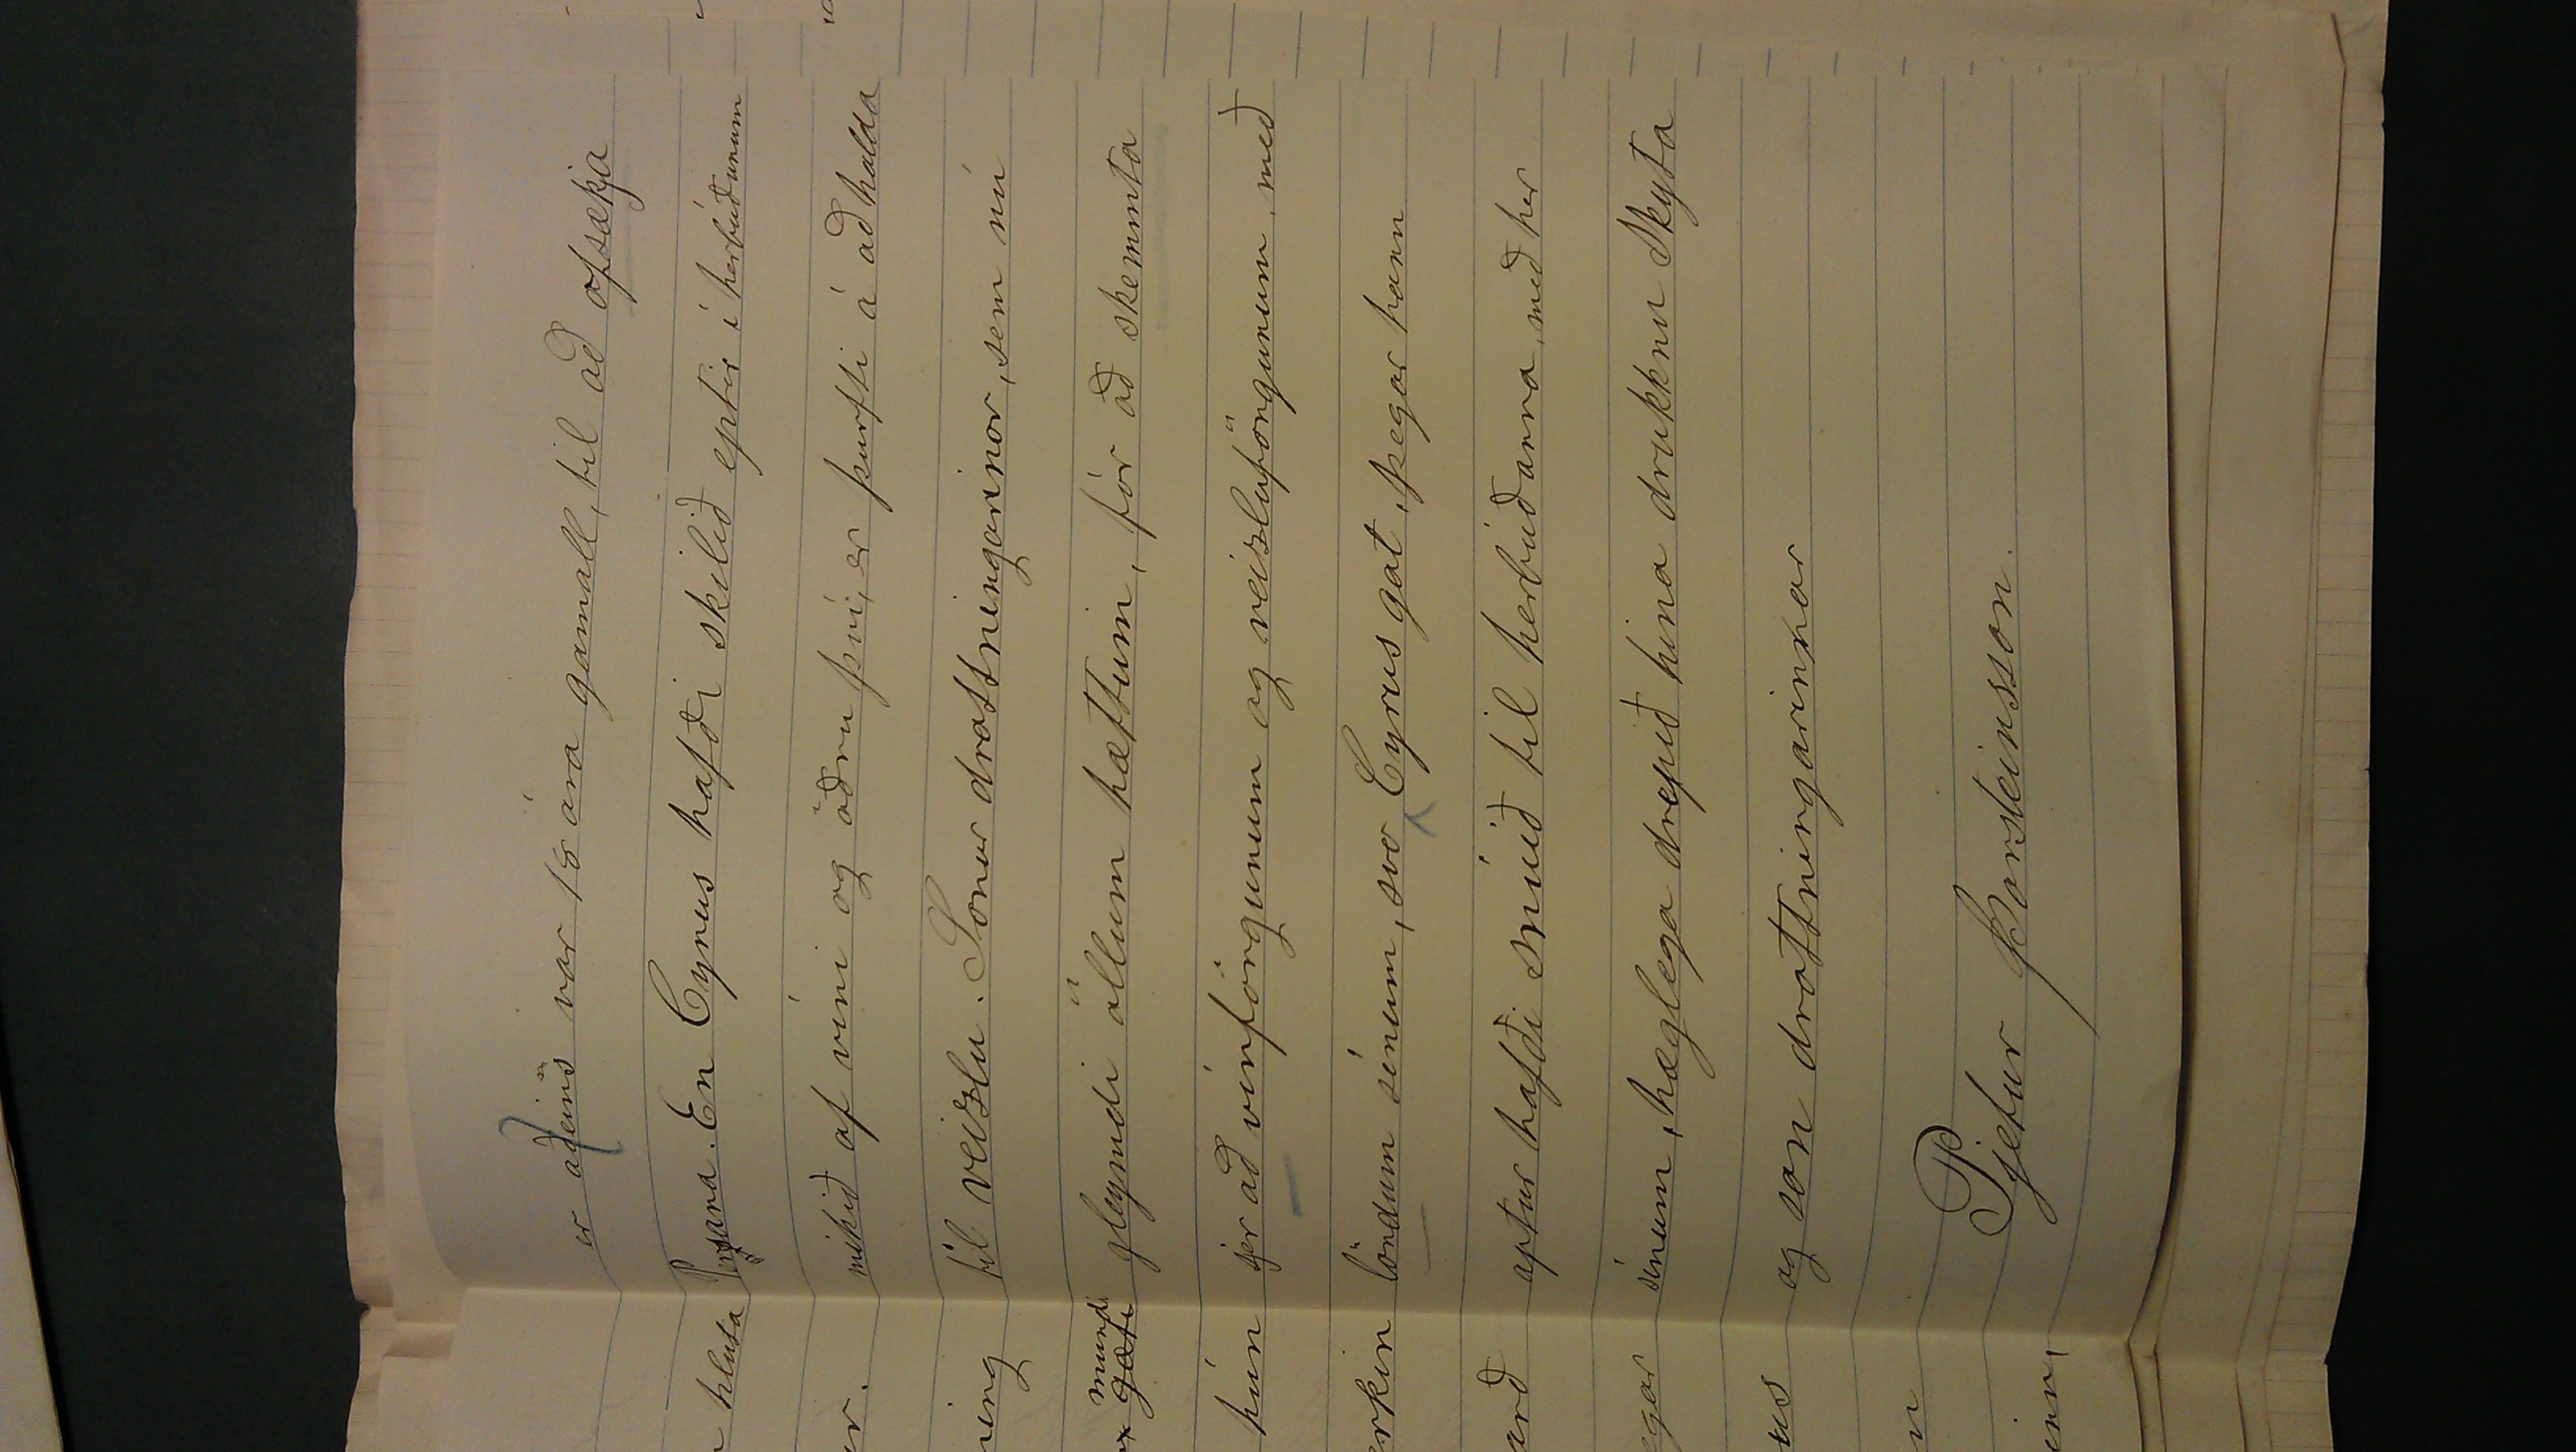 er aðeins var 18 ára gamall, til að ofsækja
Persana. En Cyrus hafði skilið eptir í herbúðunum
mikið af víni og öðru því, er þurfti á að halda
til veizlu. Sonur drottningarinnar, sem nú
gleymdi öllum hættum, fór að skemmta
sjer að vínföngunum og veizluföngunum, með
löndum sínum, svo Cyrus gat, þegar hann
aptur hafði snúið til herbúðanna, með her
sínum, hæglega drepið hina drukknu Skyta
og son drottningarinnar
Pjetur Þorsteinsson.
hluta
mundi
gæti
hún